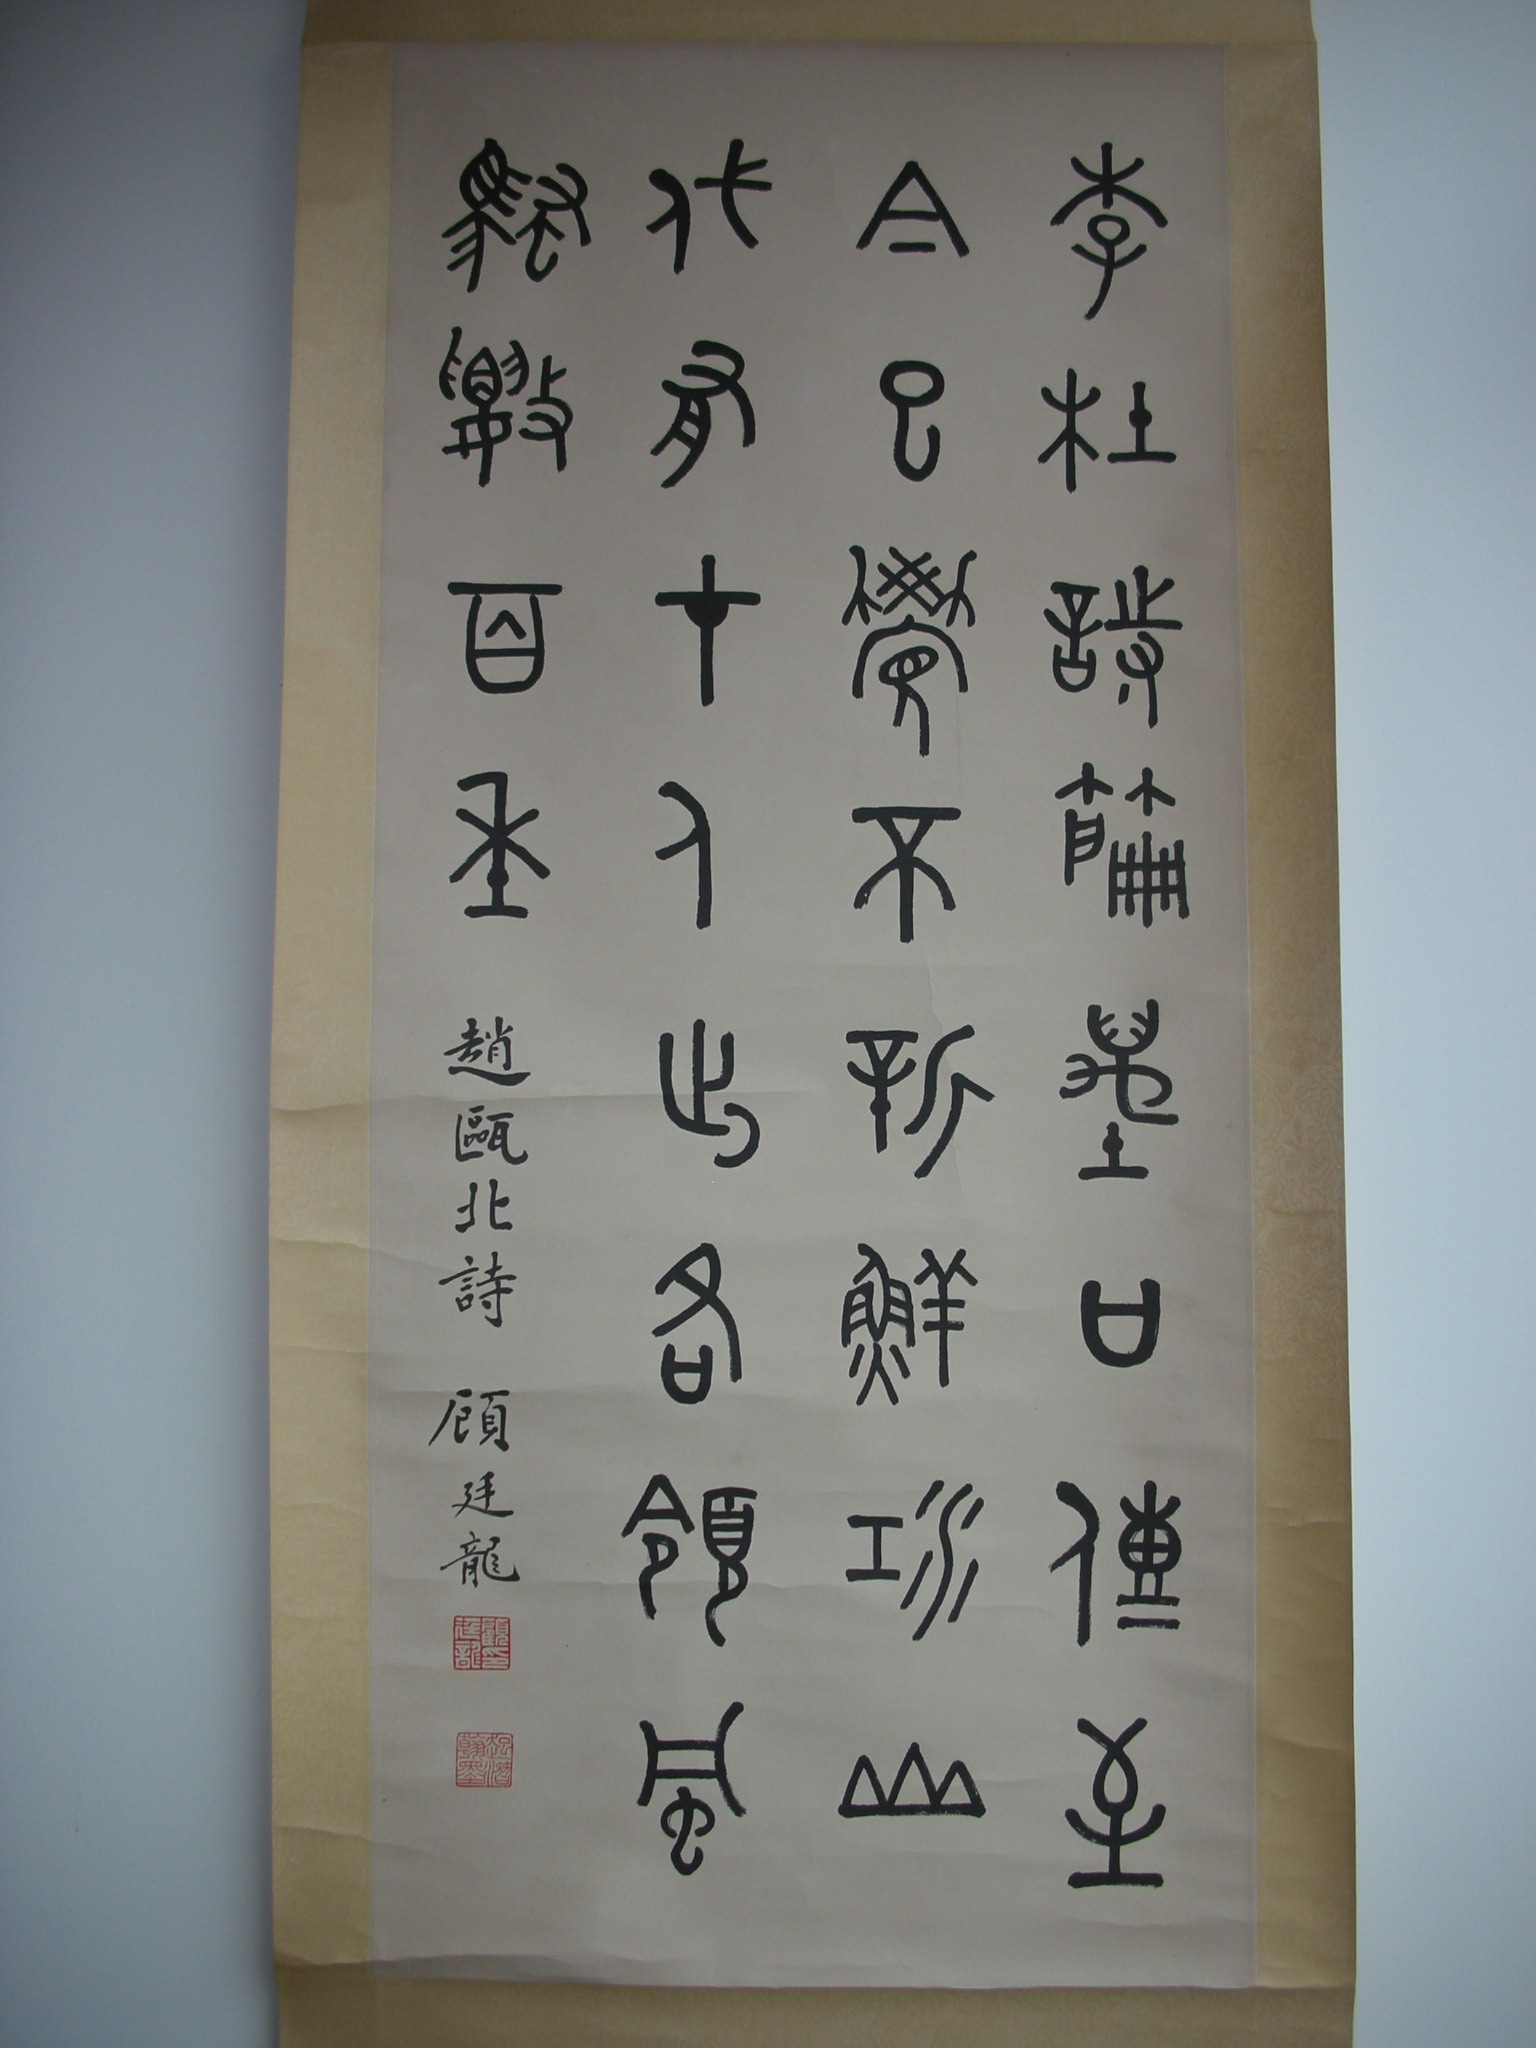 李杜詩篇萬口傳至
今已覺不新鮮江山
代有才人出各領風
騷數百年 趙甌北詩 顧廷龍
顧印廷龍
起潛翰墨